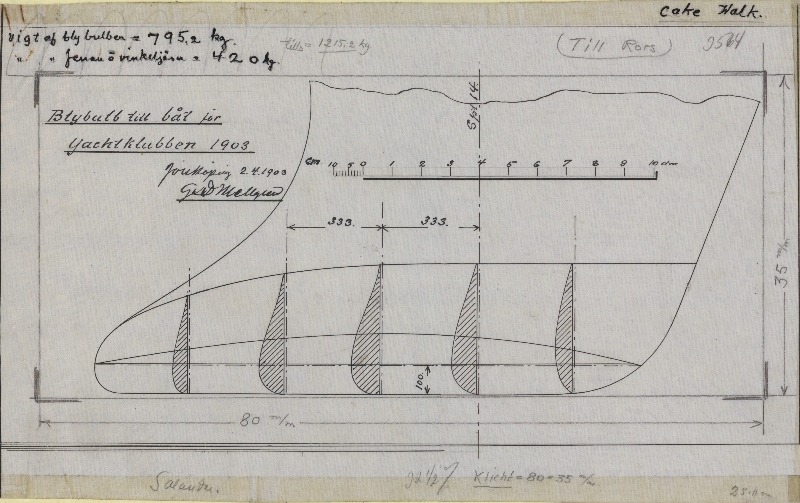 Cake Walk.
vigt af blybulben = 795,2 kg.
" " fenan ö vinkeljärn = 420 kg.
tills = 1215,2 kg
(Till Rors)
Blybulb till båt för
Yachtklubben 1903
Jönköping 2 4.1903
Spt. 14.
cm 10 5 0 1 2 3 4 5 6 7 8 9 10 dm
333. 333.
35 m/m
100.
80 m/m
Kliché = 80 = 35 m/m.
Salander.